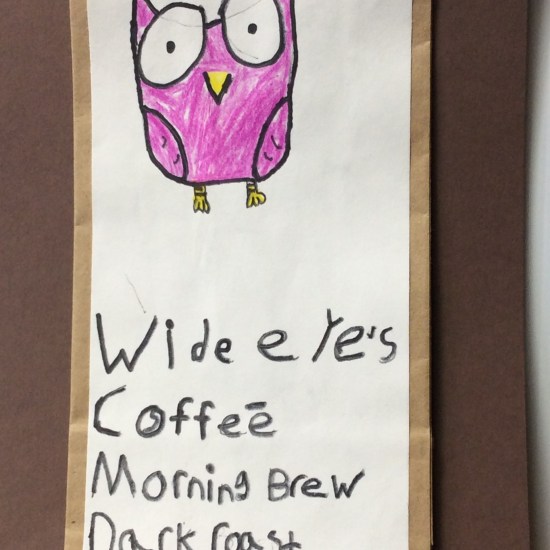 Wide eye's
Coffeē
Morning Brew
Dark roast